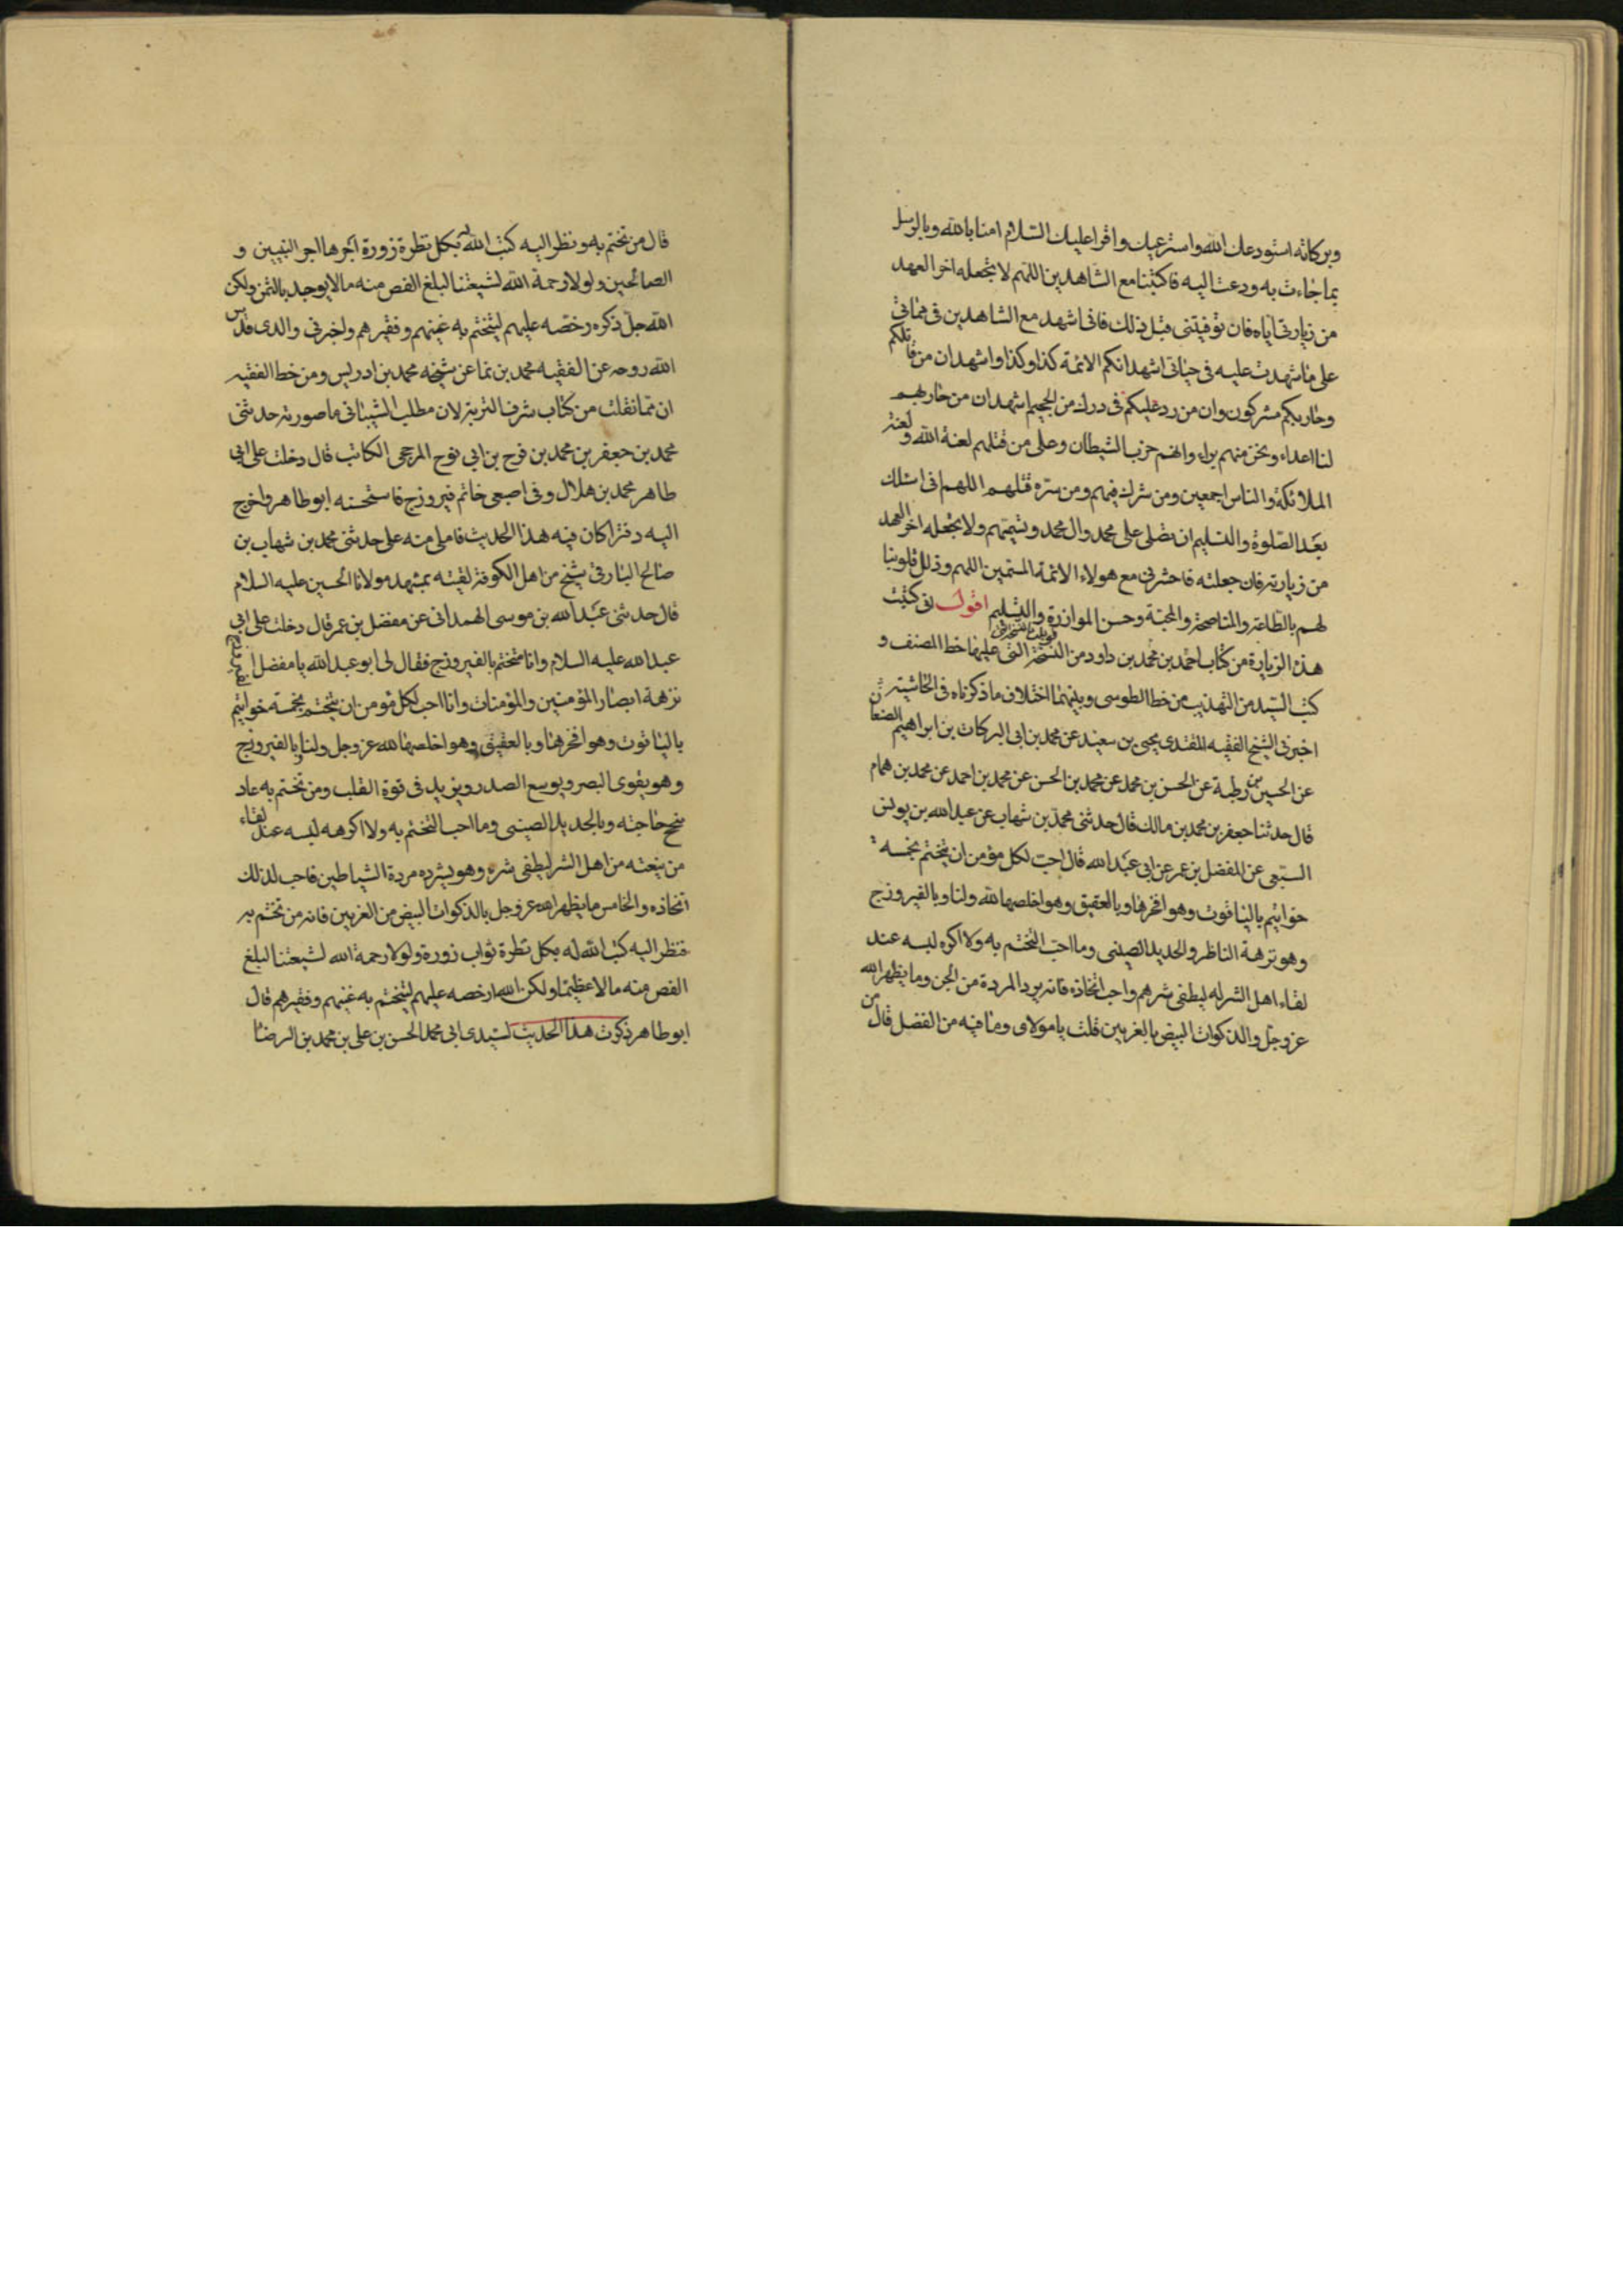 وبركاته استودعك الله واسترعيك واقرا عليك السلام امنا بالله وبالرسل
بما جاءت به ودعت اليه فاكتبنا مع الشاهدين اللهم لا تجعله اخر العهد
من زيارتي اياه فان توفيتني قبل ذلك فاني اشهد مع الشاهدين في مماتي
على ما شهدت عليه في حياتي اشهد انكم الائمة كذا وكذا واشهد ان من قاتلكم
وحاربكم مشركون وان من رد عليكم في درك من الجحيم اشهد ان من حاربهم
لنا اعداء ونحن منهم براء وانهم حزب الشيطان وعلى من قتلهم لعنة الله ولعنة
الملائكة والناس اجمعين ومن شرك فيهم ومن سره قتلهم اللهم اني اسئلك
بعد الصلوة والتسليم ان تصلى على محمد وال محمد وتسميهم ولا تجعله اخر العهد
من زيارته فان جعلته فاحشرني مع هولاء الائمة المسمين اللهم وذلل قلوبنا
لهم بالطاعة والمناصحة والمحبة وحسن الموازرة والتسليم اقول اني كتبت
هذه الزيارة من كتاب احمد بن محمد بن داود من النسخة التي عليها خط المصنف و
كتب السيد من التهذيب من خط الطوسي وبينهما اختلاف ما ذكرناه في الحاشية
اخبرني الشيخ الفقيه المقتدى يحيى بن سعيد عن محمد بن ابي البركات بن ابراهيم الصنعاني
عن الحسين بن رطبة عن الحسن بن محمد عن محمد بن الحسن عن محمد بن احمد عن محمد بن همام
قال حدثنا جعفر بن محمد بن مالك قال حدثني محمد بن شهاب عن عبد الله بن يونس
السبيعي عن المفضل بن عمر عن ابي عبد الله قال احب لكل مؤمن ان يتختم بخمسة
خواتيم بالياقوت وهو افخرها وبالعقيق وهو اخلصها لله ولنا وبالفيروزج
وهو نزهة الناظر والحديد الصيني وما احب التختم به ولا اكره لبسه عند
لقاء اهل الشر له ليطفى شرهم واحب اتخاذه فانه يرد المردة من الجن وما يظهر الله
عز وجل والذكوات البيض بالغريين قلت يا مولاى وما فيه من الفضل قال من
قال من تختم به ونظر اليه كتب الله له بكل نظرة زورة اجرها اجر النبيين و
الصالحين ولولا رحمة الله لشيعتنا لبلغ الفص منه مالا يوجد بالثمن ولكن
الله جل ذكره رخصه عليهم ليتختم به غنيهم وفقيرهم واخبرني والدى قدس
الله روحه عن الفقيه محمد بن نما عن شيخه محمد بن ادريس ومن خط الفقيه
ان مما نقلت من كتاب شرف التربة لان مطلب الشيباني ما صورته حدثني
محمد بن جعفر بن محمد بن فرج بن ابي نوح المرجى الكاتب قال دخلت على ابي
طاهر محمد بن هلال وفي اصبعي خاتم فيروزج فاستحسنه ابو طاهر واخرج
اليه دفترا كان فيه هذا الحديث فاملى منه على حدثني محمد بن شهاب بن
صالح البارقي شيخ من اهل الكوفة لقيته بمشهد مولانا الحسين عليه السلام
قال حدثني عبد الله بن موسى الهمداني عن مفضل بن عمر قال دخلت على ابي
عبد الله عليه السلام وانا متختم بالفيروزج فقال لي ابو عبد الله يا مفضل
نزهة ابصار المؤمنين والمؤمنات وانا احب لكل مؤمن ان يتختم بخمسة خواتيم
بالياقوت وهو افخرها وبالعقيق وهو اخلصها لله عز وجل ولنا وبالفيروزج
وهو يقوى البصر ويوسع الصدر ويزيد في قوة القلب ومن تختم به عاد
بنجح حاجته وبالحديد الصيني وما احب التختم به ولا اكره لبسه عند لقاء
من يتعته من اهل الشر ليطفى شره وهو يشرده مردة الشياطين فاحب لذلك
اتخاذه والخامس ما يظهر الله عز وجل بالذكوات البيض من الغريين فانه من تختم به
فنظر اليه كتب الله له بكل نظرة ثواب زورة ولولا رحمة الله لشيعتنا لبلغ
الفص منه مالا عظيما ولكن الله ارخصه عليهم ليتختم به غنيهم وفقيرهم قال
ابو طاهر ذكرت هذا الحديث لسيدى ابي محمد الحسن بن على بن محمد بن الرضا